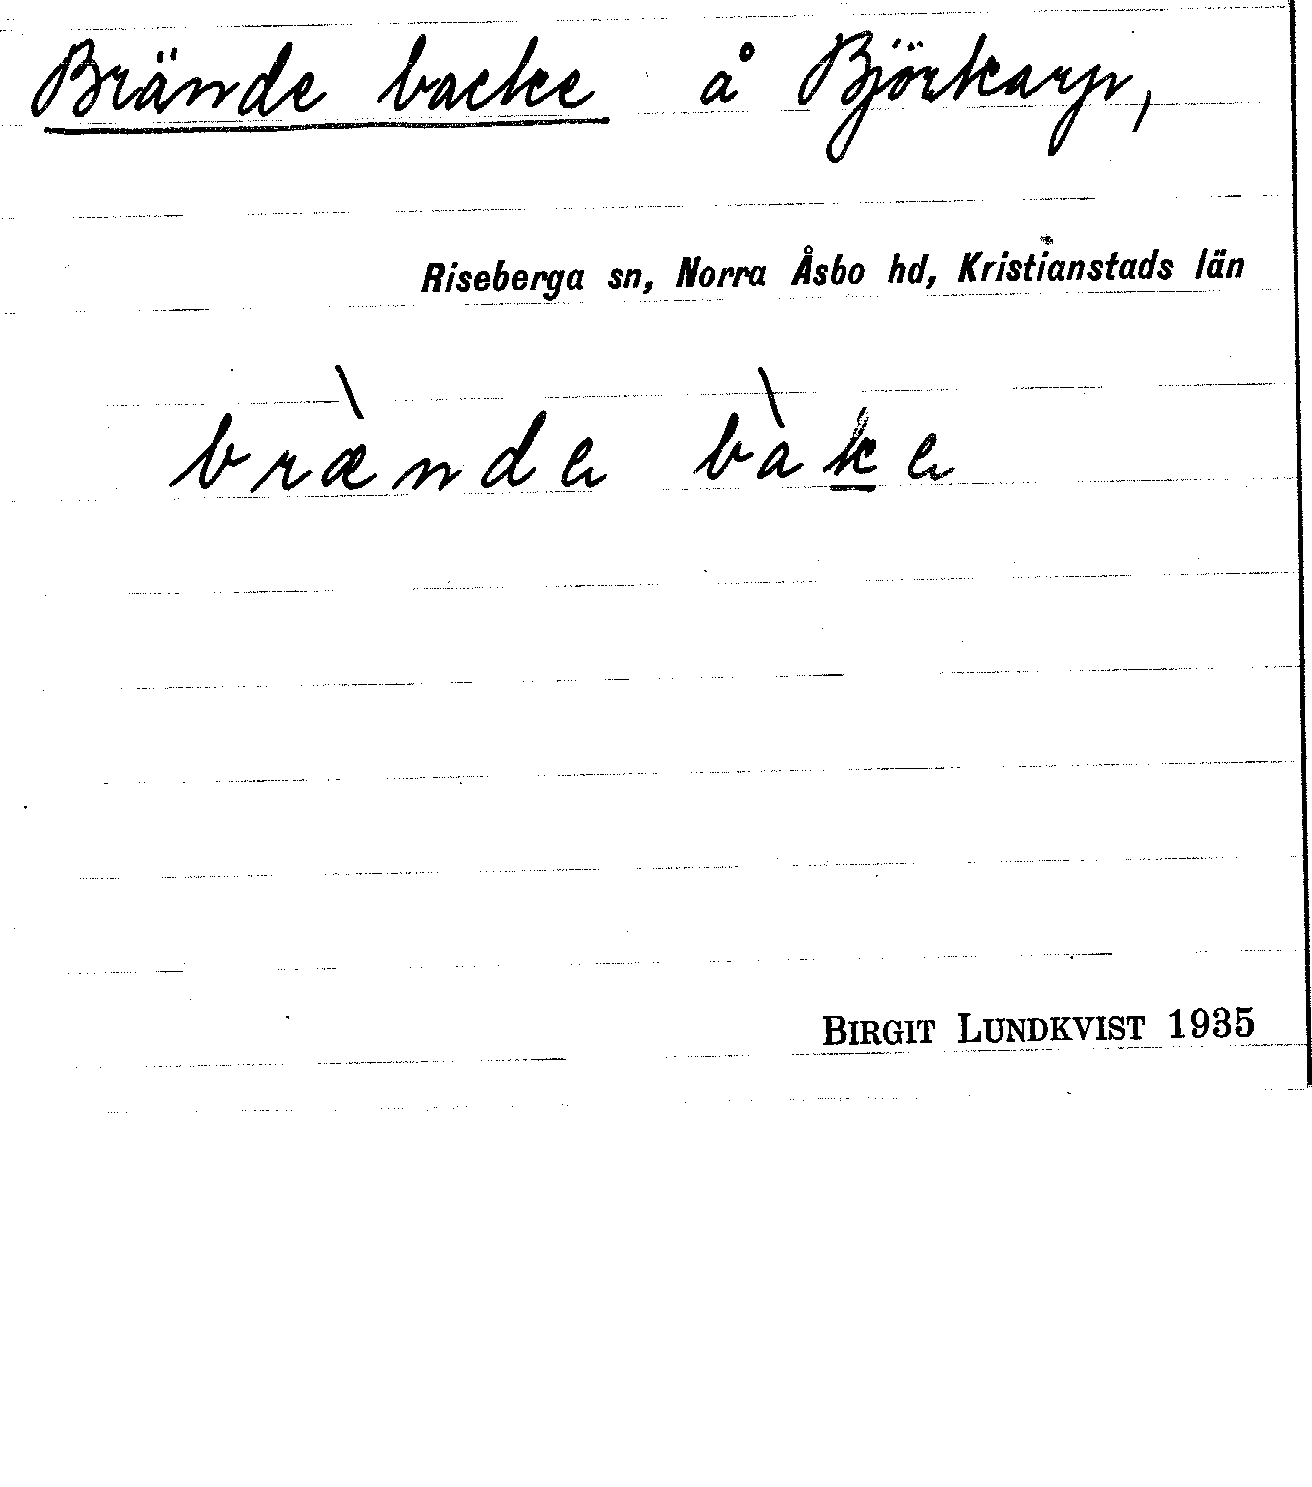 Brände backe å Björkarp,
Riseberga sn, Norra Åsbo hd, Kristianstads län
bræ̀nde bàke
BIRGIT LUNDKVIST 1935